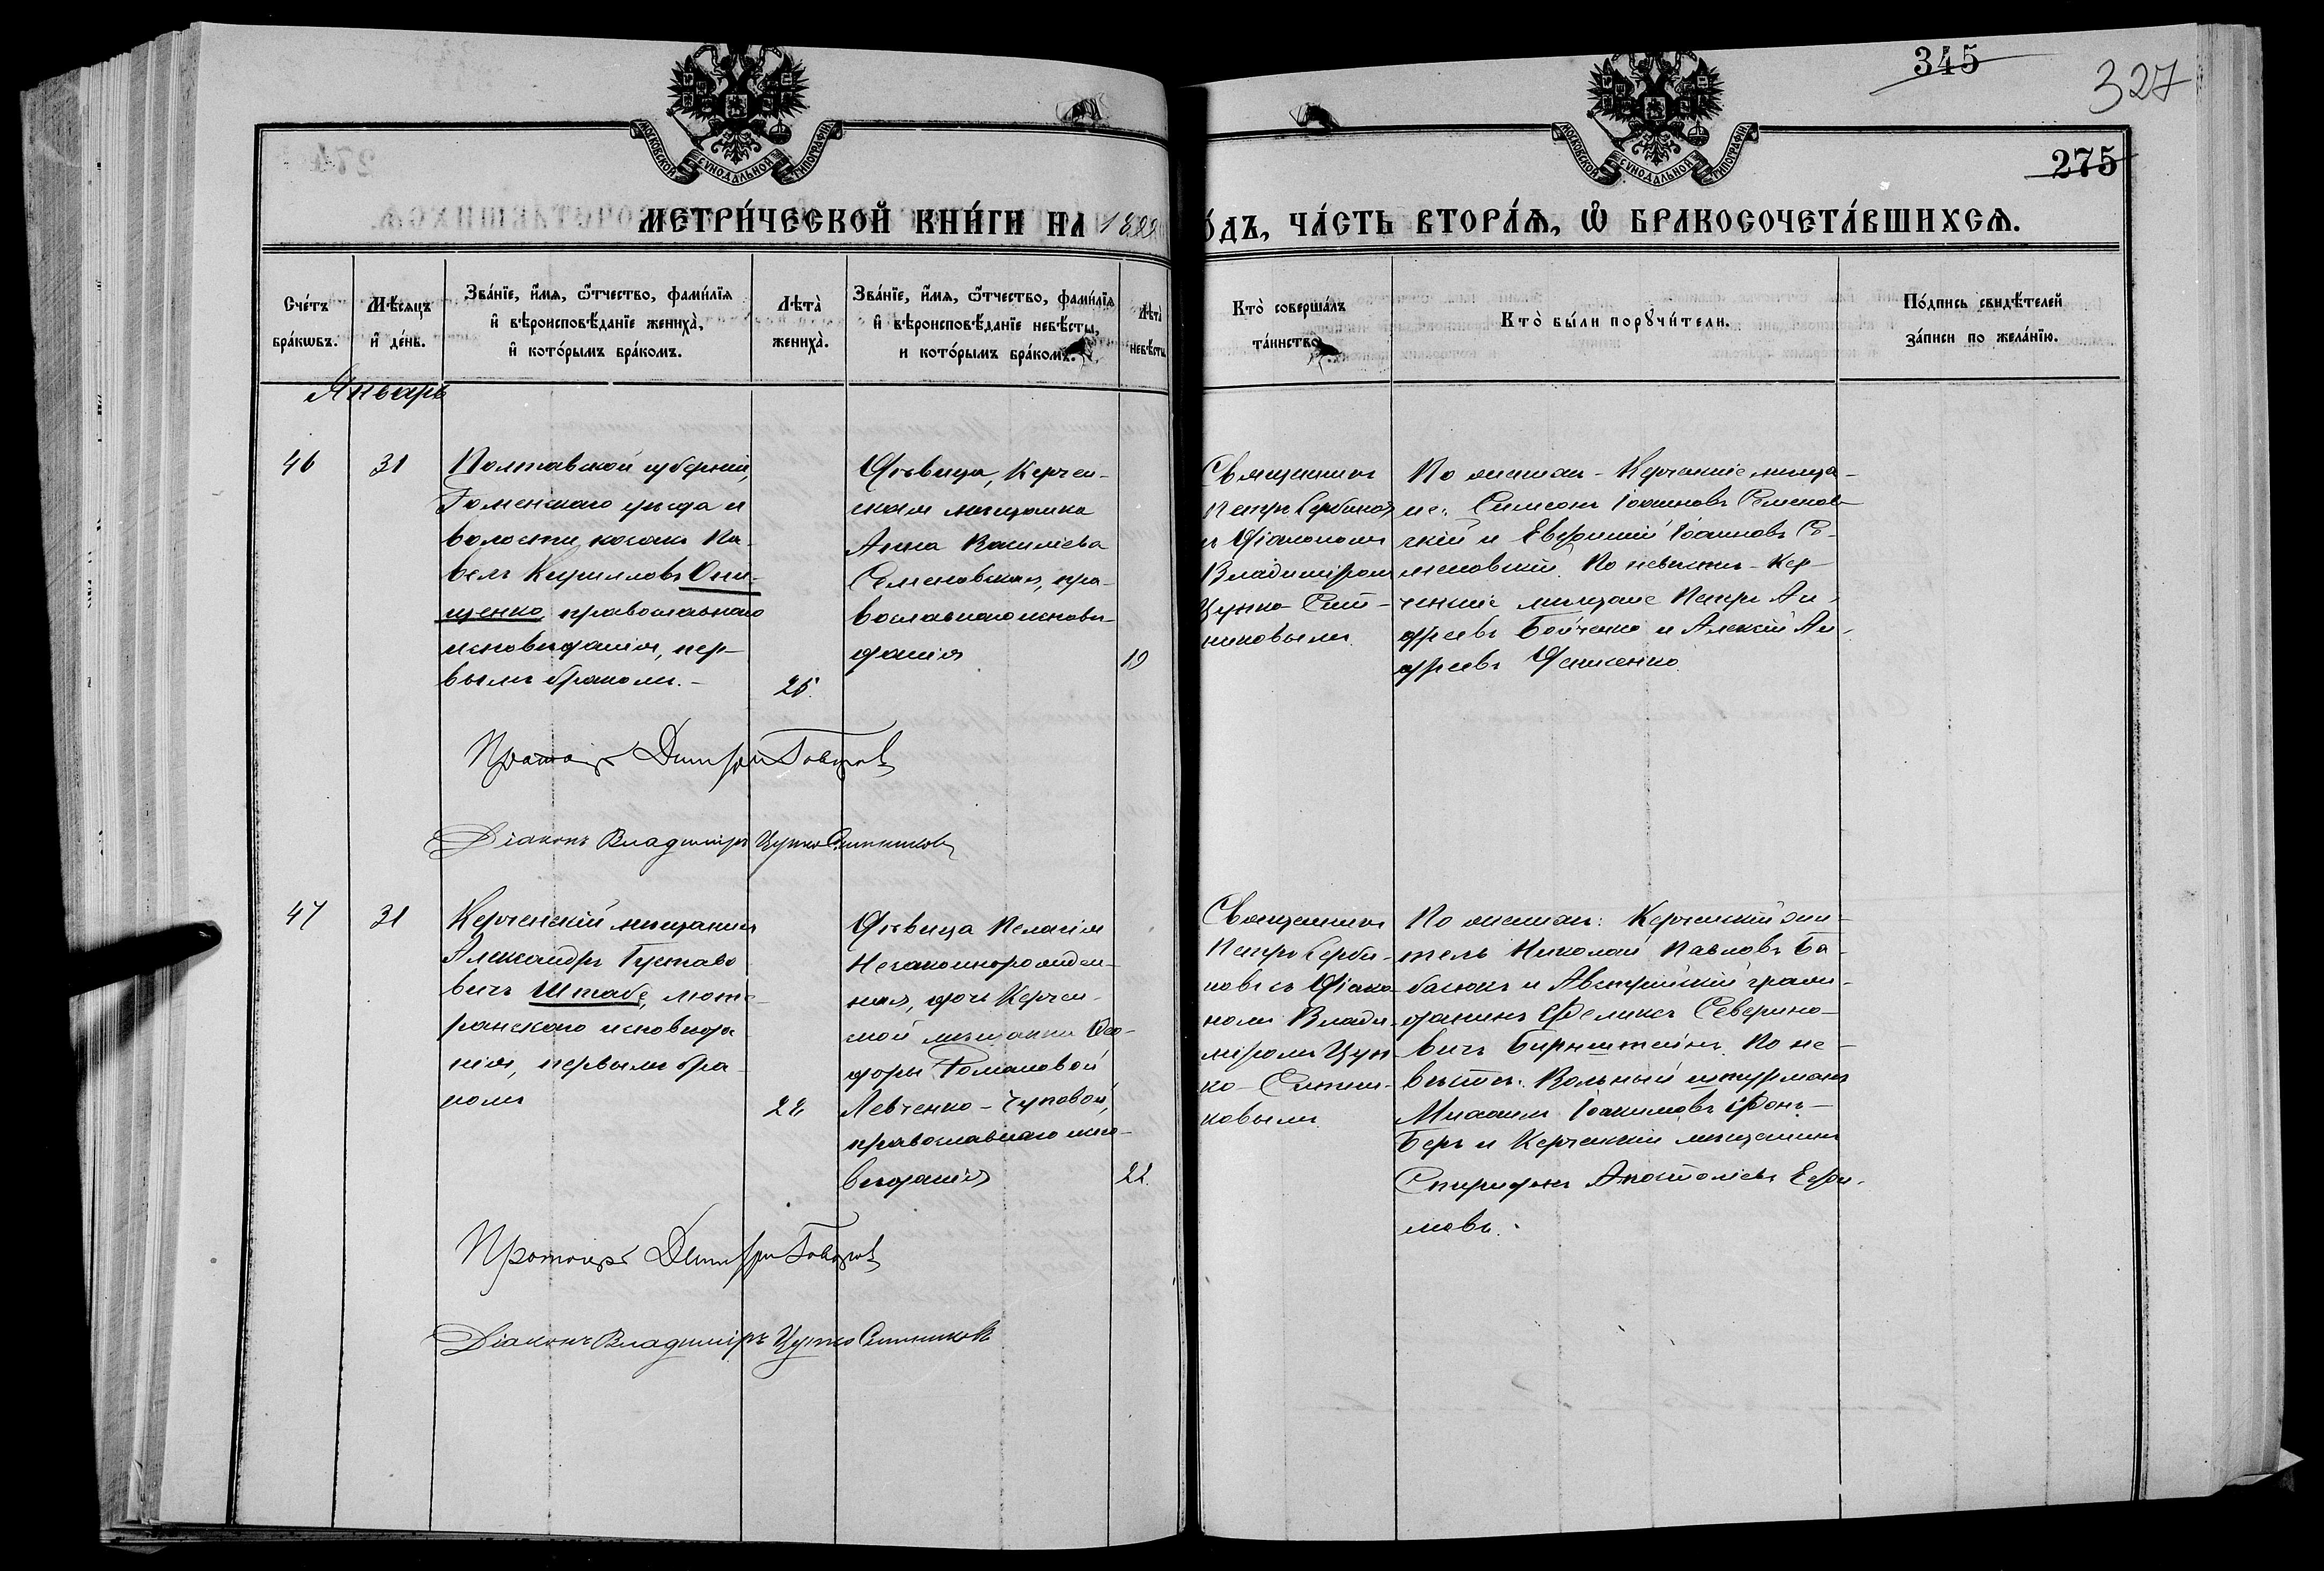 345
327
275
МОСКОВСКОЙ СѴНОДАЛЬНОЙ ТИПОГРАФІИ
МОСКОВСКОЙ СѴНОДАЛЬНОЙ ТИПОГРАФІИ
МЕТРИ́ЧЕСКОЙ КНИ́ГИ НА 18
О́ДЪ, ЧА́СТЬ ВТОРА́Ѧ, Ѽ БРАКОСОЧЕТА́ВШИХСѦ.
Сче́тъ бра́кѡвъ.
Мѣ́сѧцъ и҆ де́нь.
Зва́нїе, и҆́мѧ, ѻ҆́тчество, фами́лїѧ
и҆ вѣроисповѣ́данїе жениха̀,
и҆ кото́рымъ бра́комъ.
Лѣта̀ жениха̀.
Зва́нїе, и҆́мѧ, ѻ҆́тчество, фами́лїѧ
и҆ вѣроисповѣ́данїе невѣ́сты,
и кото́рымъ бра́комъ.
Лѣта̀ невѣ́сты
Кто̀ соверша́лъ
та́инство.
Кто̀ бы́ли порꙋчи́тели.
По́дпись свидѣ́телей
за́писи по жела́нїю.
Январь
46
31
Полтавской губерніи,
Роменскаго уѣзда и
волости козакъ Па-
велъ Кирилловъ Они-
щенко православнаго
исповѣданія, пер-
вымъ бракомъ.-
25.
Дѣвица, Керчен-
ская мѣщанка
Анна Василіева
Семеновская, пра-
вославнаго исповѣ-
данія
19
Священникъ
Петръ Сербиновъ
съ Діакономъ
Владиміромъ
Цунко-Сит-
никовымъ.
По женихѣ - Керченскіе мѣща-
не: Симеонъ Іоанновъ Семенов-
скій и Евфимій Іоанновъ Се-
меновскій. По невѣстѣ - Кер-
ченскіе мѣщане Петръ Ан-
дреевъ Бойченко и Алексій Ан-
дреевъ Денисенко.
Протоіер Димитрій Говоровъ
Діаконъ Владиміръ Цунко Ситниковъ
47
31
Керченскій мѣщанинъ
Александръ Густаво
вичъ Штабе, люте-
ранскаго исповѣда
нія, первымъ бра-
комъ
28
Дѣвица Пелагія
Незаконнорожден-
ная, дочь Керчен-
ской мѣщанки Ѳео-
доры Романовой
Левченко-Чуповой,
православнаго испо-
вѣданія
22.
Священникъ
Петръ Серби-
новъ съ Діако-
номъ Влади-
міромъ Цун-
ко-Ситни-
ковымъ.
По женихѣ: Керченскій жи-
тель Николай Павловъ Ба-
басюкъ и Австрійскій граж-
данинъ Феликсъ Северино-
вичъ Бирнштейнъ. По не-
вѣстѣ: Вольный штурманъ
Михаилъ Іоакимовъ Фонъ-
Беръ и Керченскій мѣщанинъ
Спиридонъ Апостоліевъ Ефи-
мовъ.
Протоіер Димитрій Говоровъ
Діаконъ Владиміръ Цунко Ситниковъ